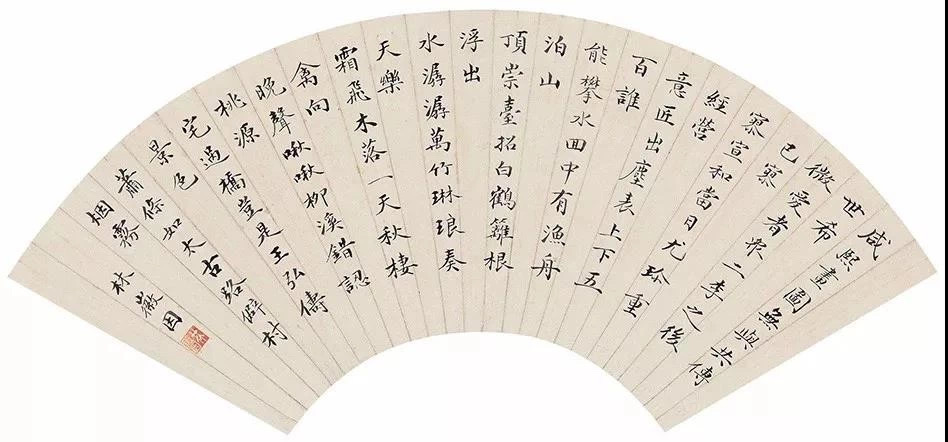 咸熙畫圖無與共傳
世希
微愛者衆二李之後
已寡
寡宣和當日尤珍重
經營
意匠出塵表上下五
百誰
能攀水囬中有漁舟
泊山
頂崇臺招白鶴籬根
浮出
水潺潺萬竹琳琅奏
天樂
霜飛木落一天秋棲
禽向
晚聲啾啾柳溪錯認
桃源
宅過橋豈是王弘儔
景色
蕭條如太古路僻村
烟霧
林徽因